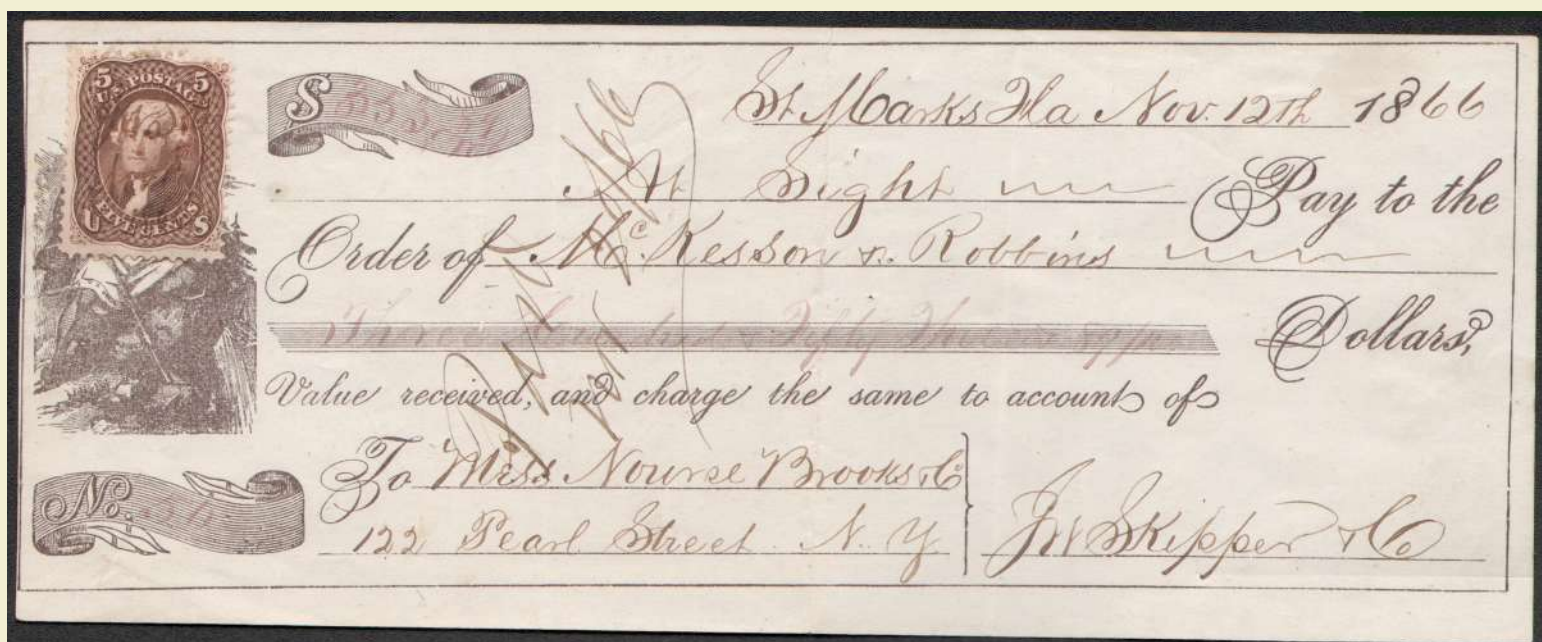 5 5
U.S. POSTAGE
FIVE CENTS
U S
$
St Marks Fla Nov. 12th 1866
At Sight Pay to the
Order of McKesson & Robbins
Three Hundred Fifty Three 89/100 Dollars,
Value received, and charge the same to account of
To Mess Nourse Brooks & Co
122 Pearl Street N. Y.
No.
JW Skipper & Co